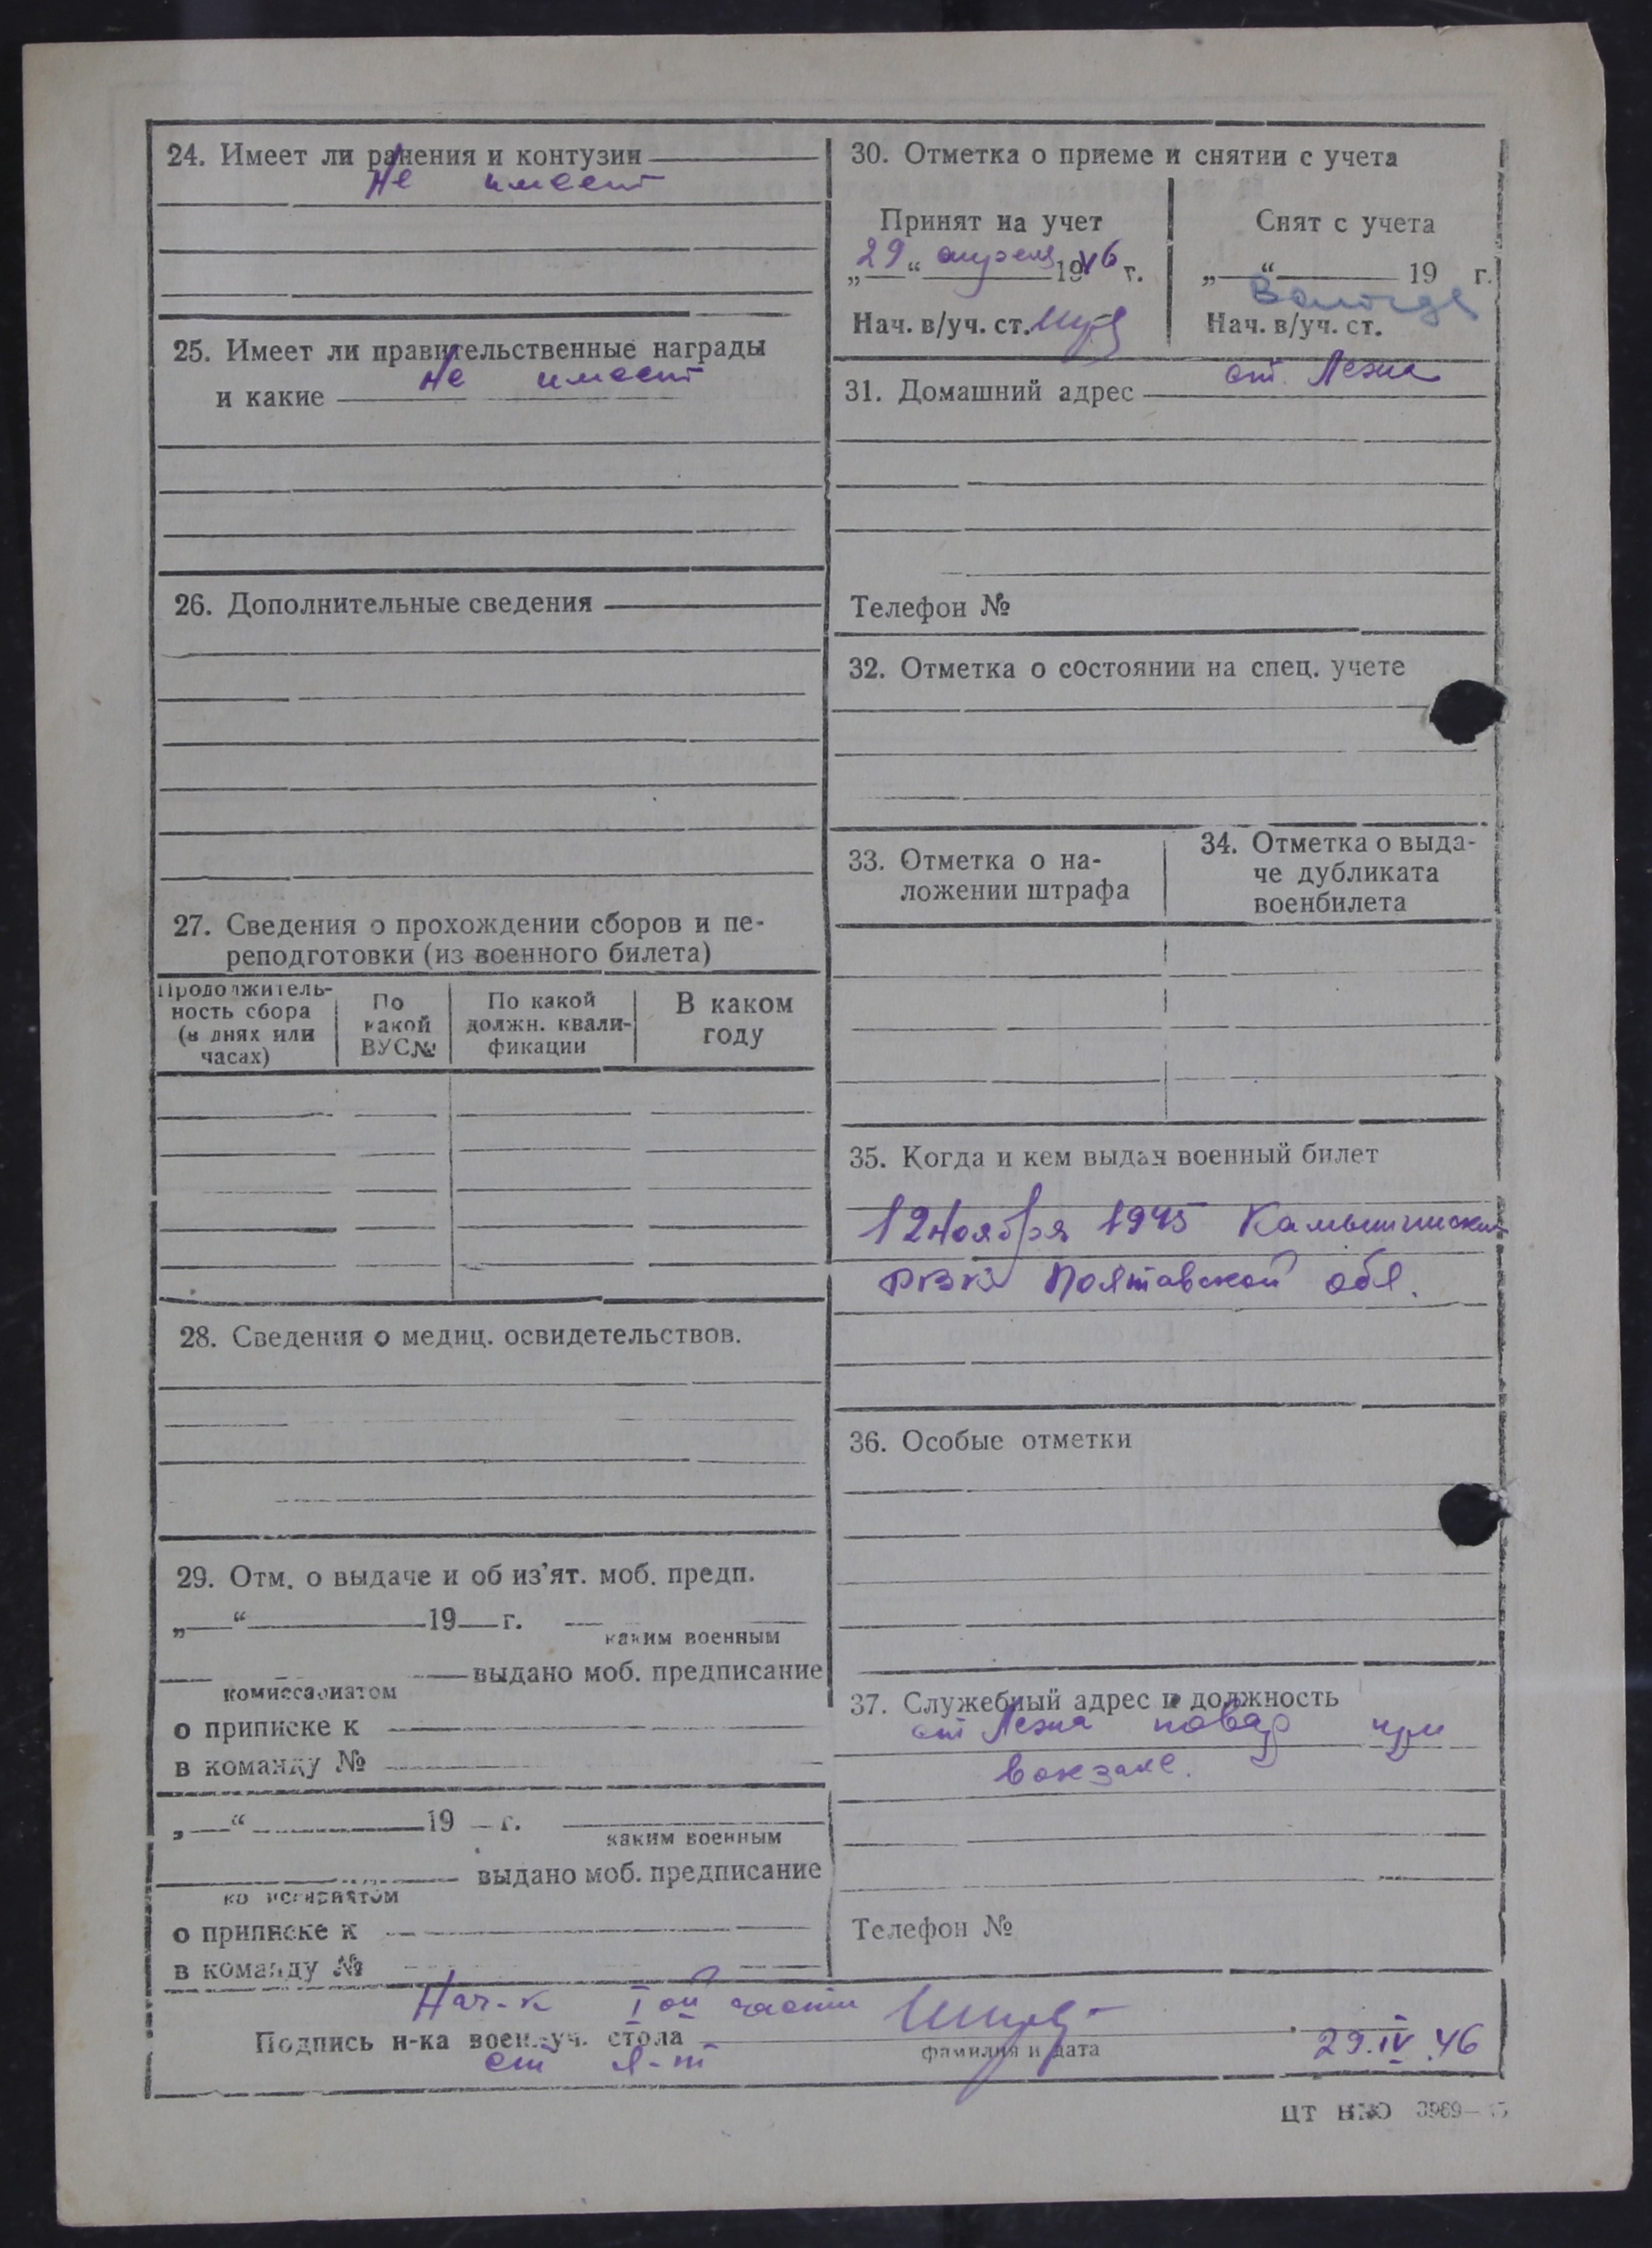 24. Имеет ли ранения и контузии
Не имеет
25. Имеет ли правительственные награды
Не имеет
и какие
26. Дополнительные сведения
27. Сведения о прохождении сборов и пе-
реподготовки (из военного билета)
Продолжитель-
ность сбора
(в днях или
часах)
По
какой
ВУС№
По какой
должн. квали-
фикации
В каком
году
28. Сведения о медиц. освидетельствов.
29. Отм. о выдаче и об из'ят. моб. предп.
„ “ 19 г.
каким военным
выдано моб. предписание
комиссариатом
о приписке к
в команду №
„ “ 19 г.
каким военным
выдано моб. предписание
комиссариатом
о приписке к
в команду №
30. Отметка о приеме и снятии с учета
Принят на учет
„29“ апреля 1946 г.
Нач. в/уч. ст.
Снят с учета
„ “ 19 г.
Вологда
Нач. в/уч. ст.
31. Домашний адрес ст. Лежа
Телефон №
32. Отметка о состоянии на спец. учете
33. Отметка о на-
ложении штрафа
34. Отметка о выда-
че дубликата
военбилета
35. Когда и кем выдан военный билет
12 Ноября 1945 Камышинским
РВК Полтавской обл.
36. Особые отметки
37. Служебный адрес и должность
ст Лежа повар при
вокзале.
Телефон №
Нач-к I ой части
Подпись н-ка воен.-уч. стола
фамилия и дата
29.IV.46
ст л-т
ЦТ НКО 3969—45